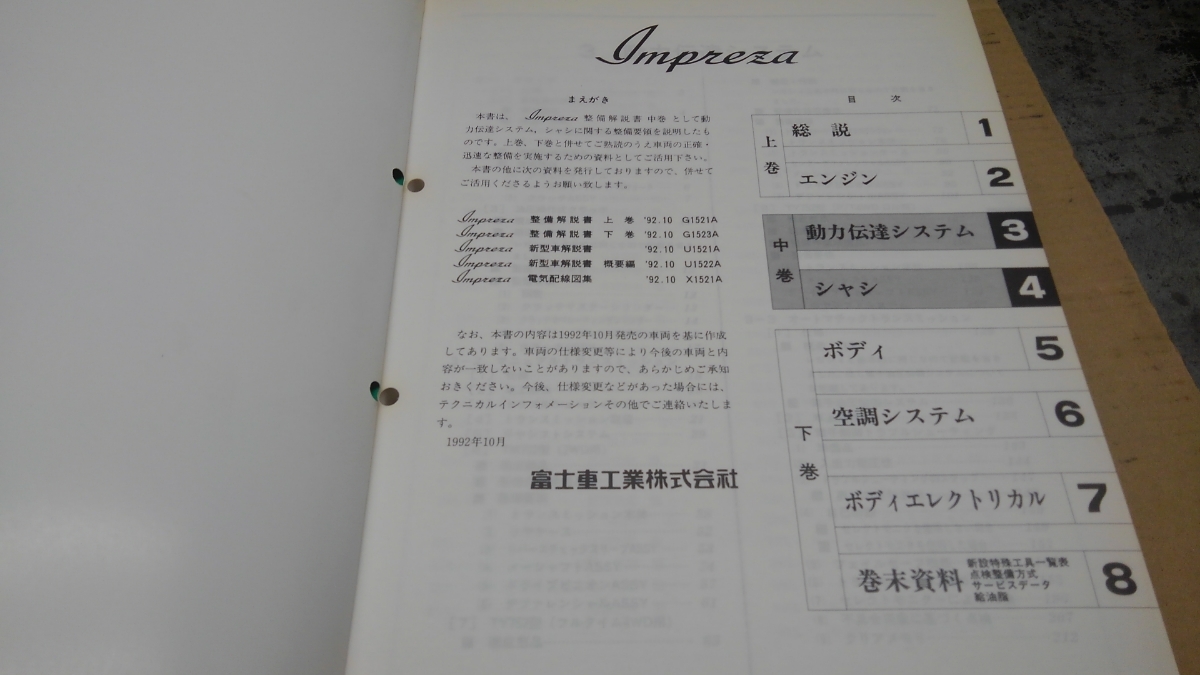 Impreza
まえがき
本書は、Impreza 整備解説書 中巻 として動
力伝達システム，シャシに関する整備要領を説明したも
のです。上巻、下巻と併せてご熟読のうえ車両の正確・
迅速な整備を実施するための資料としてご活用下さい。
本書の他に次の資料を発行しておりますので、併せて
ご活用くださるようお願い致します。
Impreza 整備解説書 上巻 '92.10 G1521A
Impreza 整備解説書 下巻 '92.10 G1523A
Impreza 新型車解説書 '92.10 U1521A
Impreza 新型車解説書 概要編 '92.10 U1522A
Impreza 電気配線図集 '92.10 X1521A
なお、本書の内容は1992年10月発売の車両を基に作成
してあります。車両の仕様変更等により今後の車両と内
容が一致しないことがありますので、あらかじめご承知
おきください。今後、仕様変更などがあった場合には、
テクニカルインフォメーションその他でご連絡いたしま
す。
1992年10月
富士重工業株式会社
目次
上巻
総説 1
エンジン 2
中巻
動力伝達システム 3
シャシ 4
下巻
ボディ 5
空調システム 6
ボディエレクトリカル 7
巻末資料 8
新設特殊工具一覧表
点検整備方式
サービスデータ
給油脂